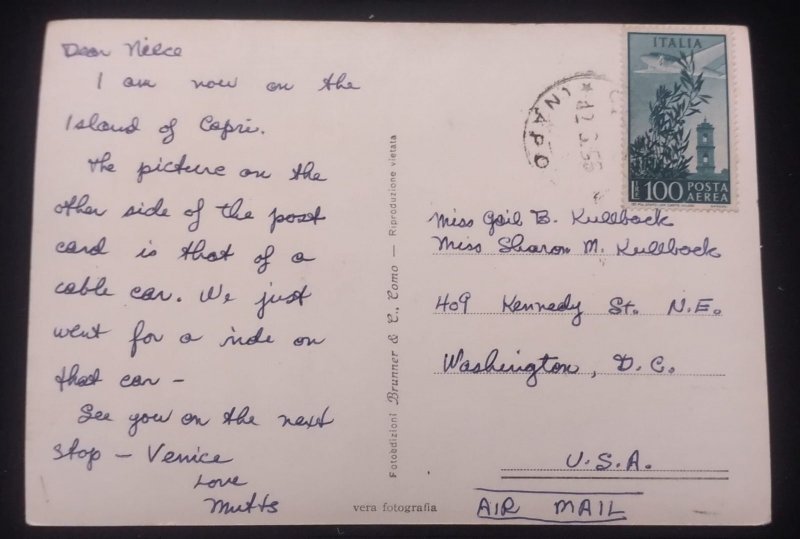 Dear Niece
I am now on the
Island of Capri.
The picture on the
other side of the post
card is that of a
cable car. We just
went for a ride on
that car -
See you on the next
stop - Venice
Love
Mutts
Fotoedizioni Brunner & C., Como — Riproduzione vietata
vera fotografia
NAPO
12.3.55
ITALIA
L. 100 POSTA
AEREA
Miss Gail B. Kullback
Miss Sharon M. Kullback
409 Kennedy St. N.E.
Washington, D.C.
U.S.A.
AIR MAIL